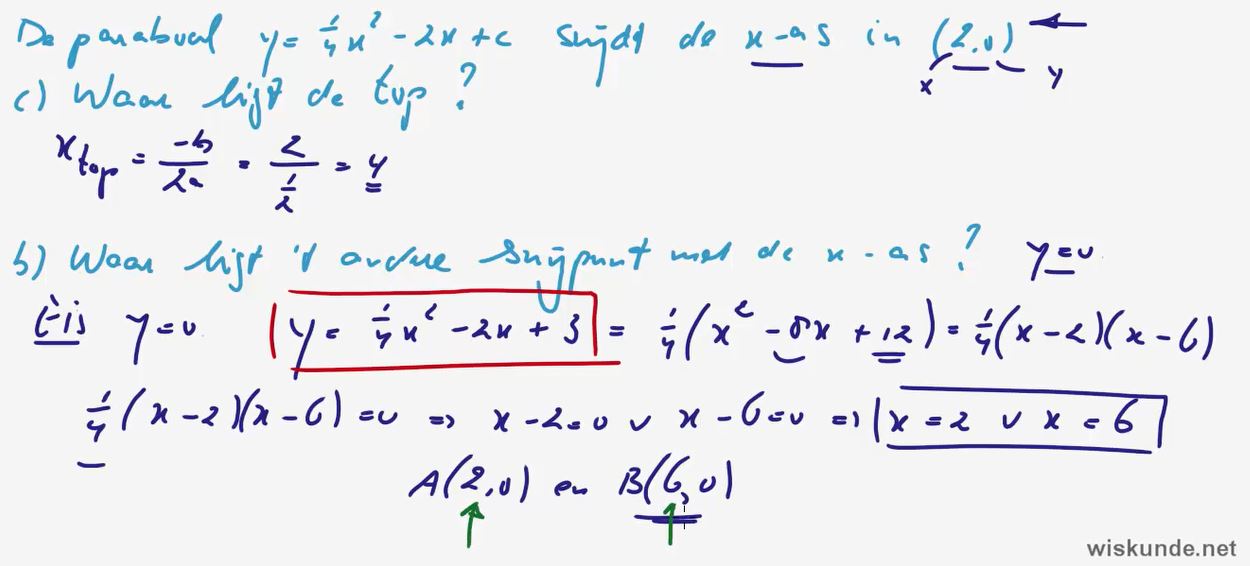 De parabool y = 1/4 x² - 2x + c snijdt de x-as in (2,0) ←
x y
c) Waar ligt de top?
x top = -b/2a = 2/(1/2) = 4
b) Waar ligt 't andere snijpunt met de x-as? y=0
Eis y=0 y = 1/4 x² - 2x + 3 = 1/4 (x² - 8x + 12) = 1/4 (x-2)(x-6)
1/4 (x-2)(x-6) = 0 => x-2=0 v x-6=0 => x=2 v x=6
A(2,0) en B(6,0)
wiskunde.net